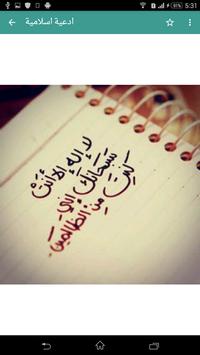 5:31
ادعية اسلامية
لا إله إلا أنت
سبحانك إني
كنت من الظالمين